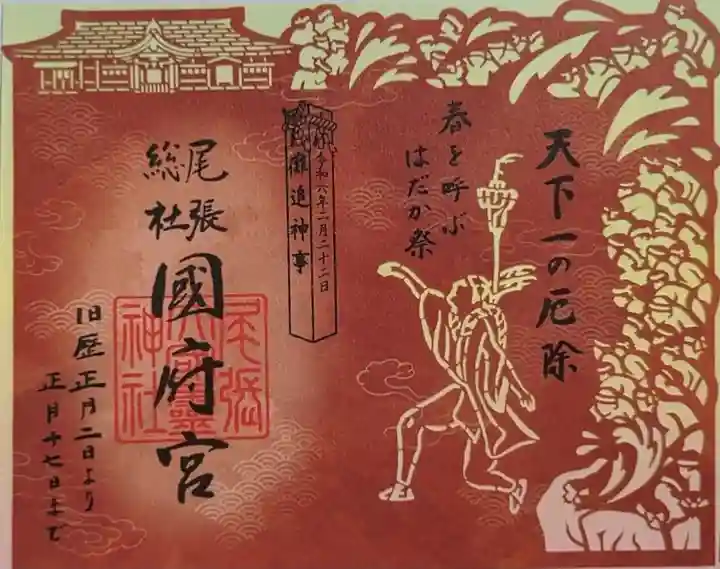 天下一の厄除
春を呼ぶ
はだか祭
於令和六年二月二十二日
儺追神事
尾張
総社
國府宮
旧歴正月二日より
正月十七日まで
尾張
大國霊
神社